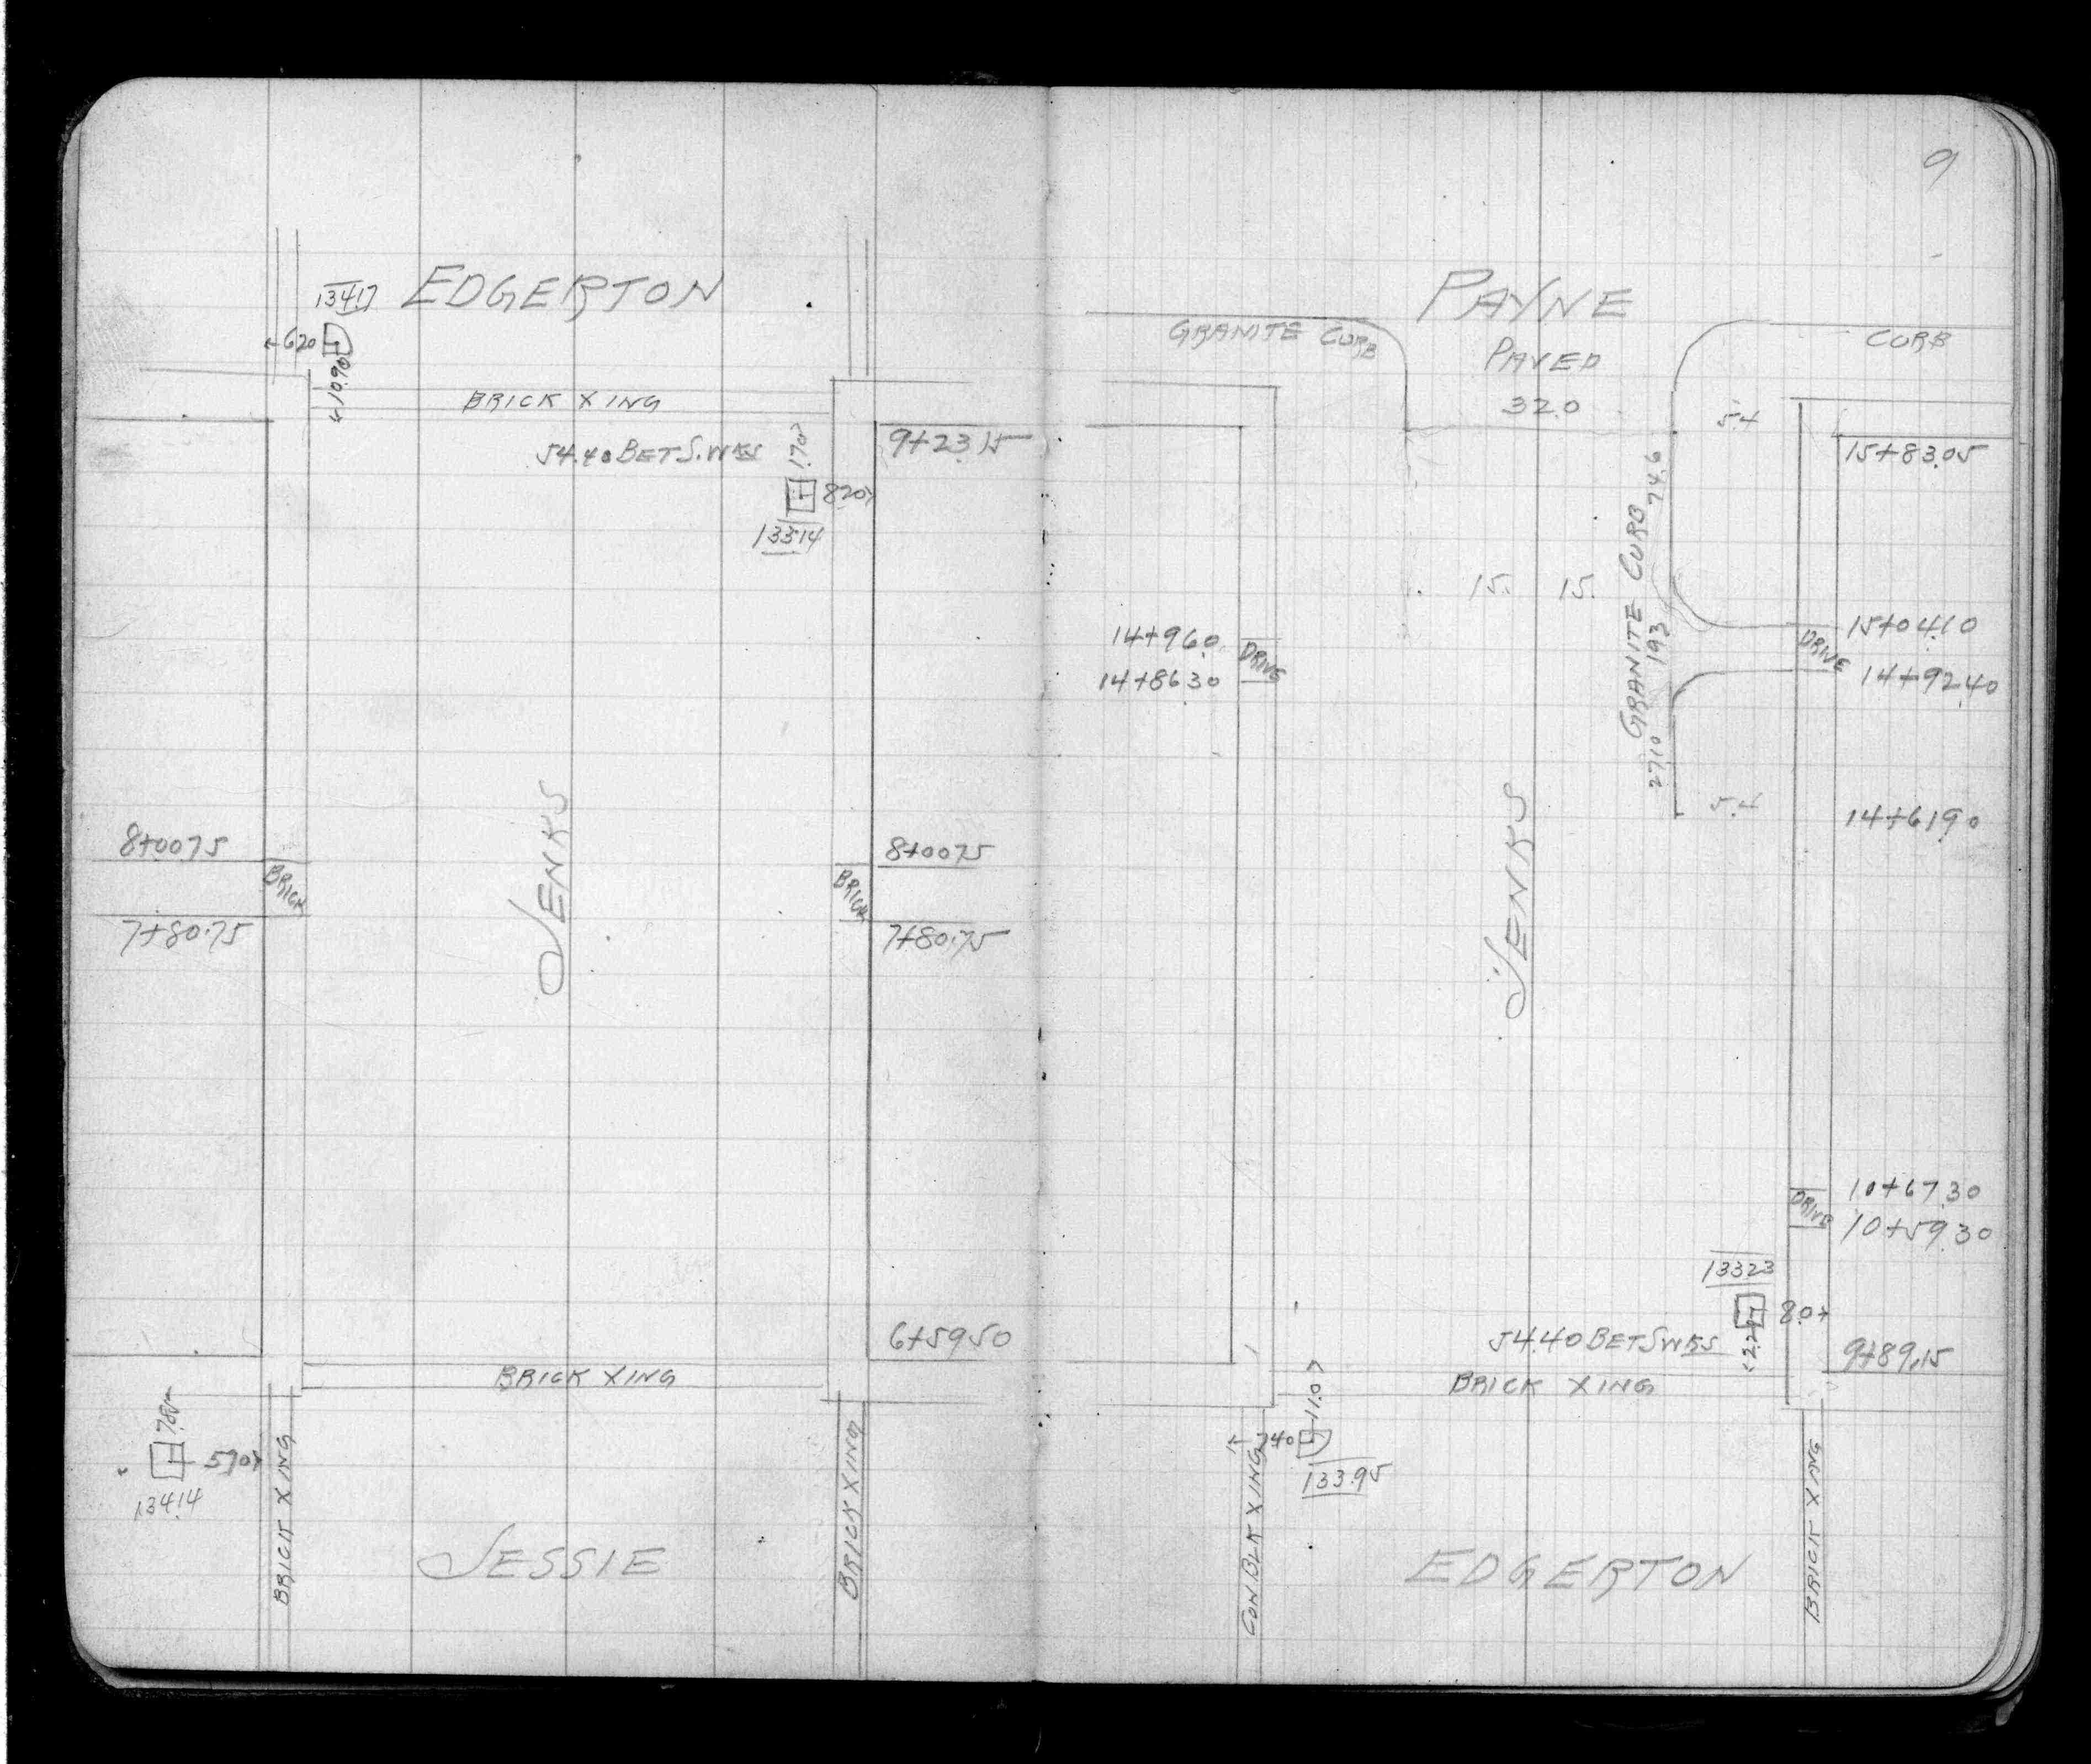 9
EDGERTON
134.17
←6.20
←10.90
BRICK XING
54.40 BET S.WKS
1.70→
8.20→
133.14
9+23.15
8+00.75
BRICK
7+80.75
JENKS
8+00.75
BRICK
7+80.75
6+59.50
BRICK XING
7.85
5.70→
134.14
BRICK XING
JESSIE
BRICK XING
PAYNE
GRANITE CURB
CURB
PAVED
32.0
5.4
15+83.05
GRANITE CURB 74.6
15. 15.
14+96.0
DRIVE
14+86.30
19.3
DRIVE
15+04.10
14+92.40
27.10
5.4
14+61.90
JENKS
DRIVE
10+67.30
10+59.30
133.23
8.0→
54.40 BET SWKS
9+89.15
BRICK XING
11.0→
←7.40
133.95
CON BLK XING
EDGERTON
BRICK XING